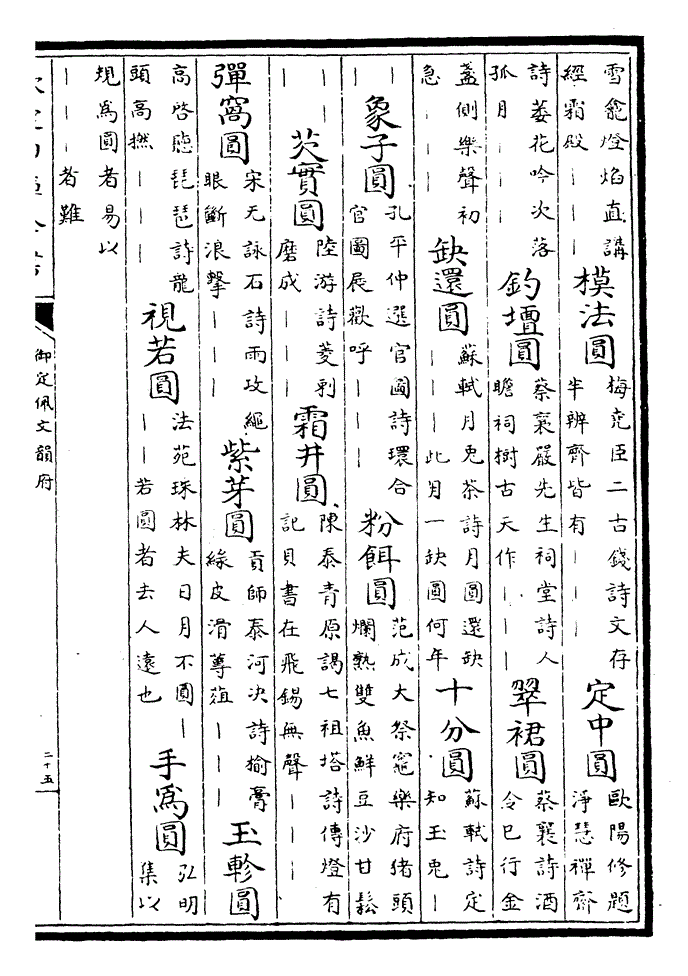 雪龕燈焰直講經霜殿｜｜｜ 模法圓 梅堯臣二古錢詩文存半辨齊皆有｜｜｜ 定中圓 歐陽修題淨慧禪齋
詩萎花吟次落孤月｜｜｜ 釣壇圓 蔡襄嚴先生祠堂詩人瞻祠樹古天作｜｜｜ 翠裙圓 蔡襄詩酒令已行金
盞側樂聲初急｜｜｜ 缺還圓 蘇軾月兎茶詩月圓還缺｜｜｜此月一缺圓何年 十分圓 蘇軾詩定知玉兎｜
｜｜ 象子圓 孔平仲選官圖詩環合官圖展歡呼｜｜｜ 粉餌圓 范成大祭竈樂府猪頭爛熟雙魚鮮豆沙甘鬆
｜｜｜ 芡實圓 陸游詩菱剥磨成｜｜｜ 霜井圓 陳泰青原謁七祖塔詩傳燈有記貝書在飛錫無聲｜｜｜
彈窩圓 宋无詠石詩雨攻繩眼斷浪擊｜｜｜ 紫芽圓 貢師泰河决詩榆膏綠皮滑蓴菹｜｜｜ 玉軫圓
高啓聽琵琶詩龍頭高撚｜｜｜ 視若圓 法苑珠林夫日月不圓｜｜｜若圓者去人遠也 手爲圓 弘明集以
規爲圓者易以｜｜｜者難
御定佩文韻府
二十五